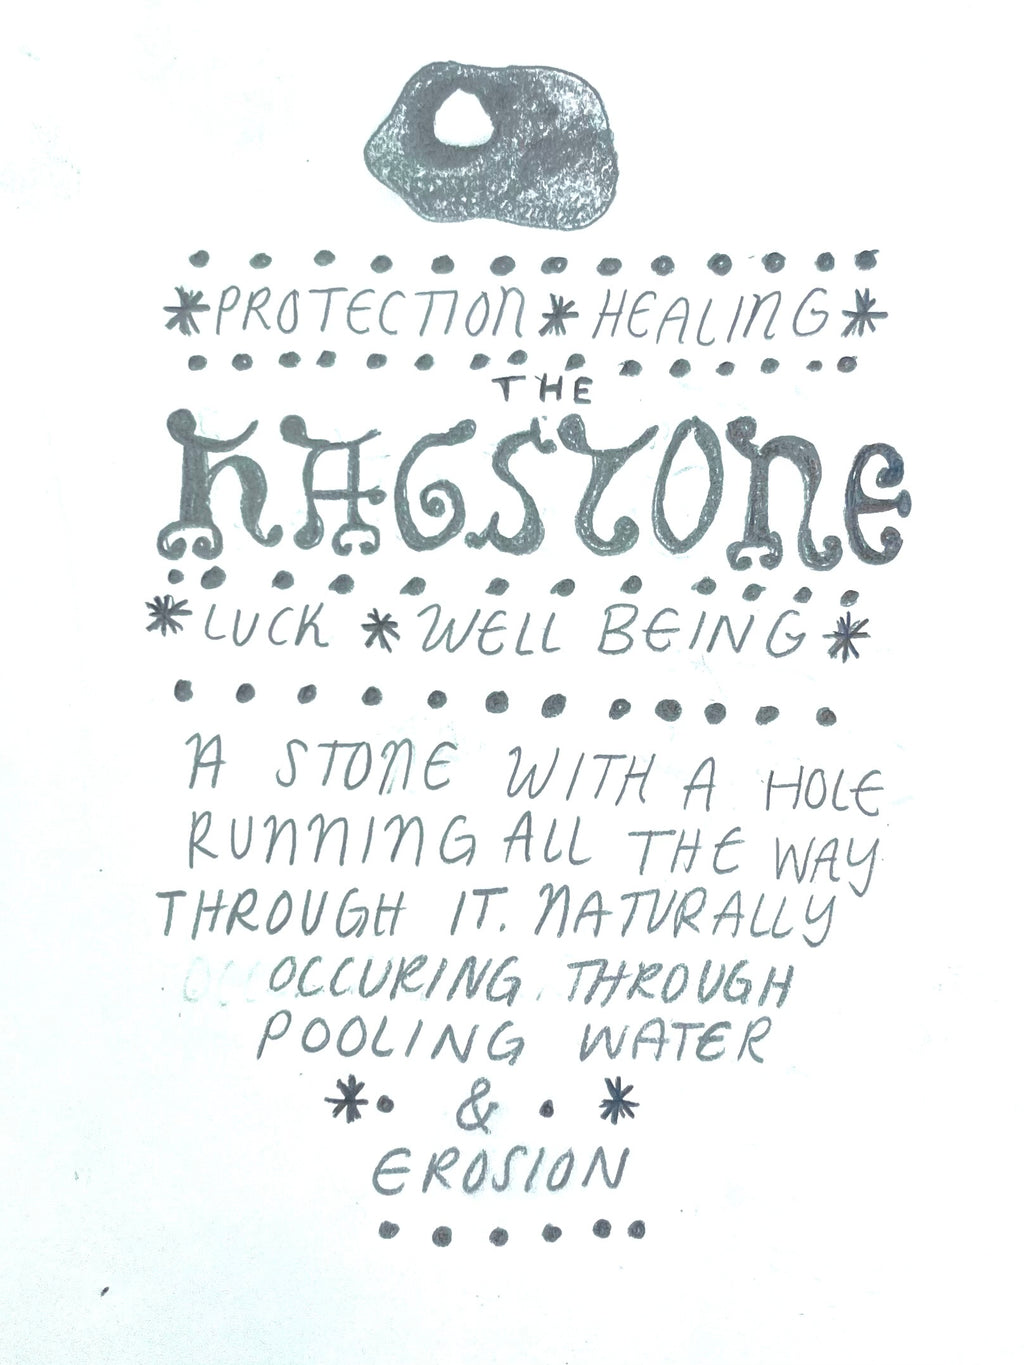 *PROTECTION * HEALING *
THE
HAGSTONE
*LUCK * WELL BEING *
A STONE WITH A HOLE
RUNNING ALL THE WAY
THROUGH IT. NATURALLY
OCCURING THROUGH
POOLING WATER
&
EROSION